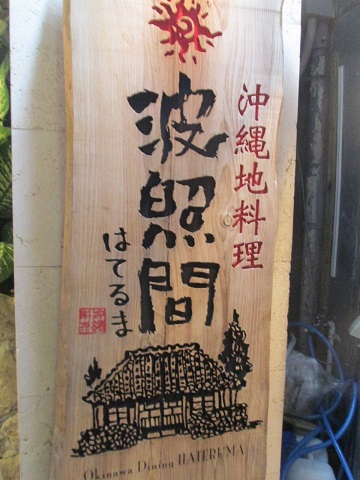 沖縄地料理
波照間
はてるま
Okinawa Dining HATERUMA